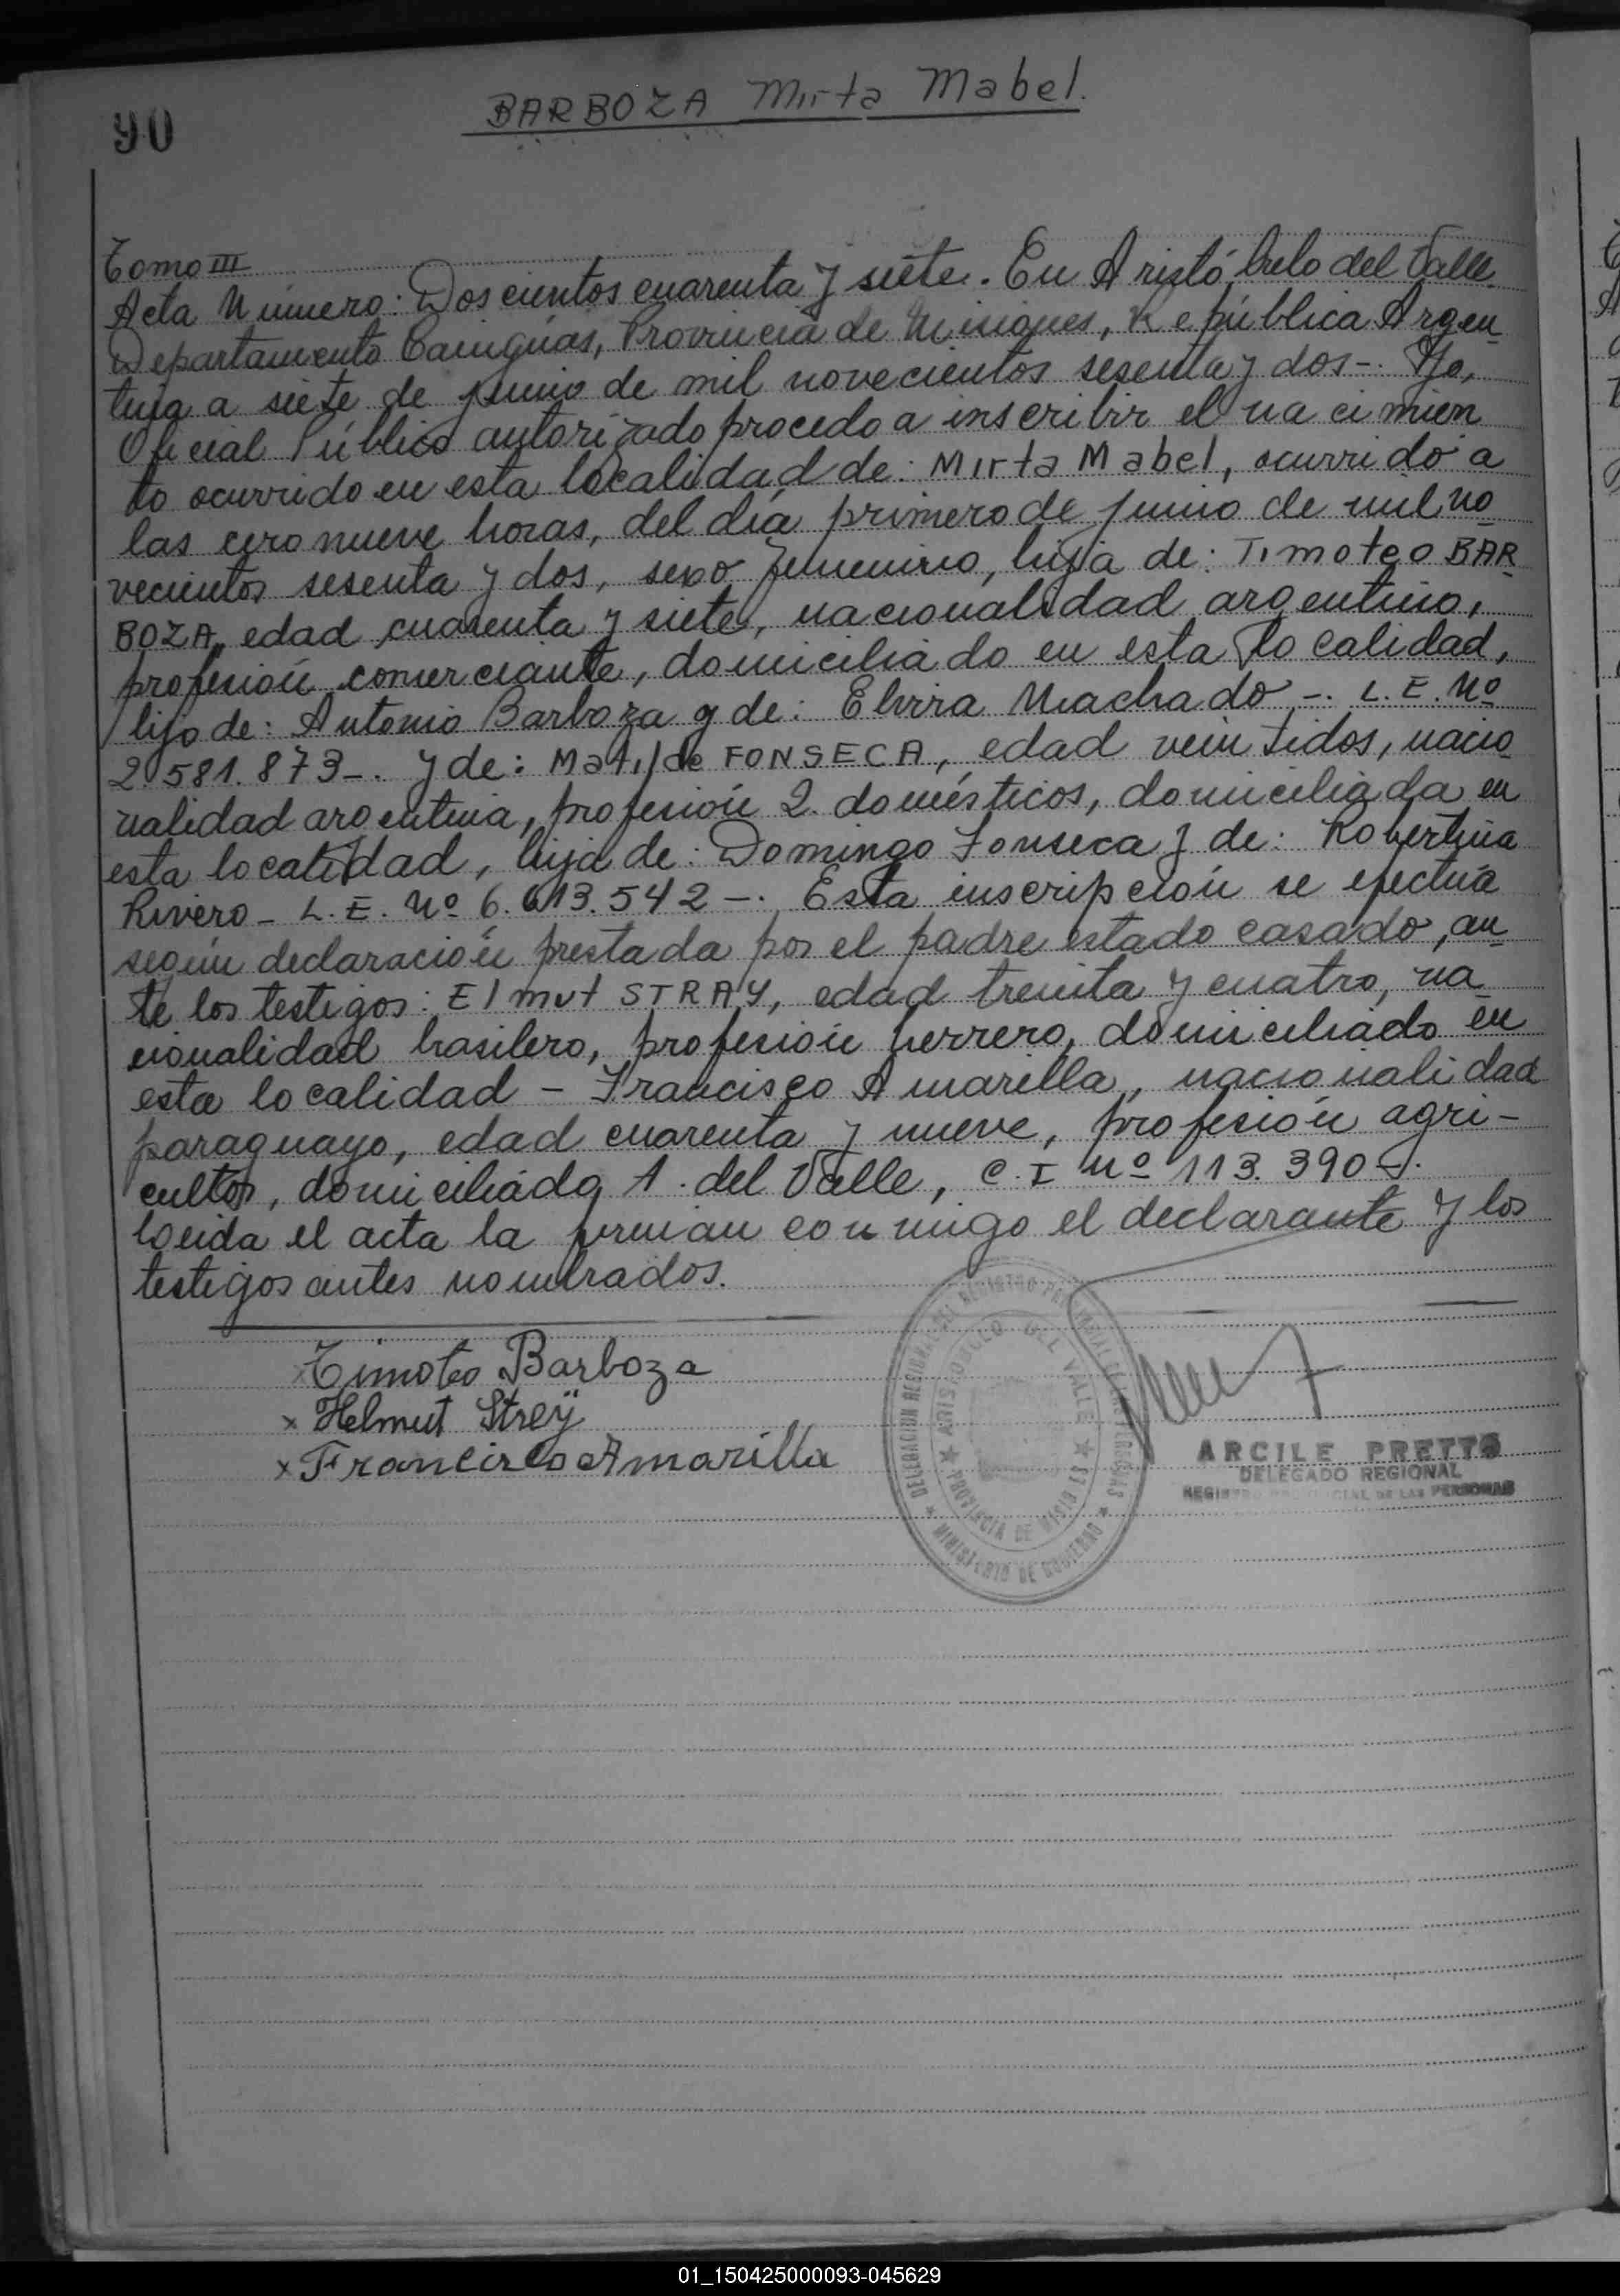 90
BARBOZA Mirta Mabel.
Tomo III
Acta Número: Doscientos cuarenta y siete. En Aristóbulo del Valle
Departamento Cainguás, Provincia de Misiones, República Argen
tina a siete de junio de mil novecientos sesenta y dos-. Yo,
Oficial Público autorizado procedo a inscribir el nacimien
to ocurrido en esta localidad de: Mirta Mabel, ocurrido a
las cero nueve horas, del día primero de junio de mil no
vecientos sesenta y dos, sexo femenino, hija de: Timoteo BAR
BOZA, edad cuarenta y siete, nacionalidad argentino,
profesión comerciante, domiciliado en esta localidad,
hijo de: Antonio Barboza y de: Elvira Machado -. L.E. Nº
2.581.873-. y de: Matilde FONSECA, edad veintidos, nacio
nalidad argentina, profesión Q. domésticos, domiciliada en
esta localidad, hija de: Domingo Fonseca y de: Robertina
Rivero - L.E. Nº 6.613.542 -. Esta inscripción se efectúa
según declaración prestada por el padre estado casado, an
te los testigos: Elmut STRAY, edad treinta y cuatro, na
cionalidad brasilero, profesión herrero, domiciliado en
esta localidad - Francisco Amarilla, nacionalidad
paraguayo, edad cuarenta y nueve, profesión agri-
cultor, domiciliado A. del Valle, C.I Nº 113.390-.
Leida el acta la firman conmigo el declarante y los
testigos antes nombrados.
Timoteo Barboza
x Helmut Streÿ
x Francisco Amarilla
DELEGACION REGIONAL DEL REGISTRO PROVINCIAL DE LAS PERSONAS
ARISTOBULO DEL VALLE
PROVINCIA DE MISIONES
MINISTERIO DE GOBIERNO
ARCILE PRETTO
DELEGADO REGIONAL
REGISTRO PROVINCIAL DE LAS PERSONAS
01_150425000093-045629